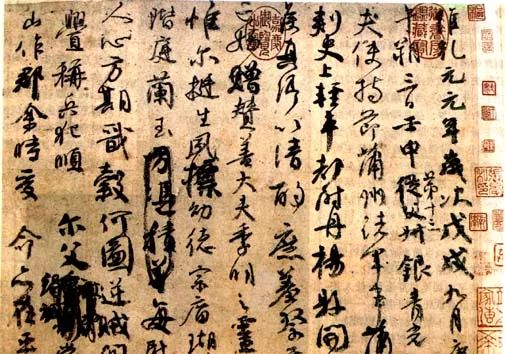 維乾元元年歲次戊戌九月庚
午朔三日壬申第十三從父叔銀青光
夫使持節蒲州諸軍事蒲
刺史上輕車都尉丹楊縣開國
侯真卿以清酌庶羞祭
亡姪贈贊善大夫季明之靈
惟爾挺生夙標幼德宗廟瑚
階庭蘭玉方憑積善每慰
人心方期戩穀何圖逆賊間
釁稱兵犯順爾父
山作郡余時受命亦在平